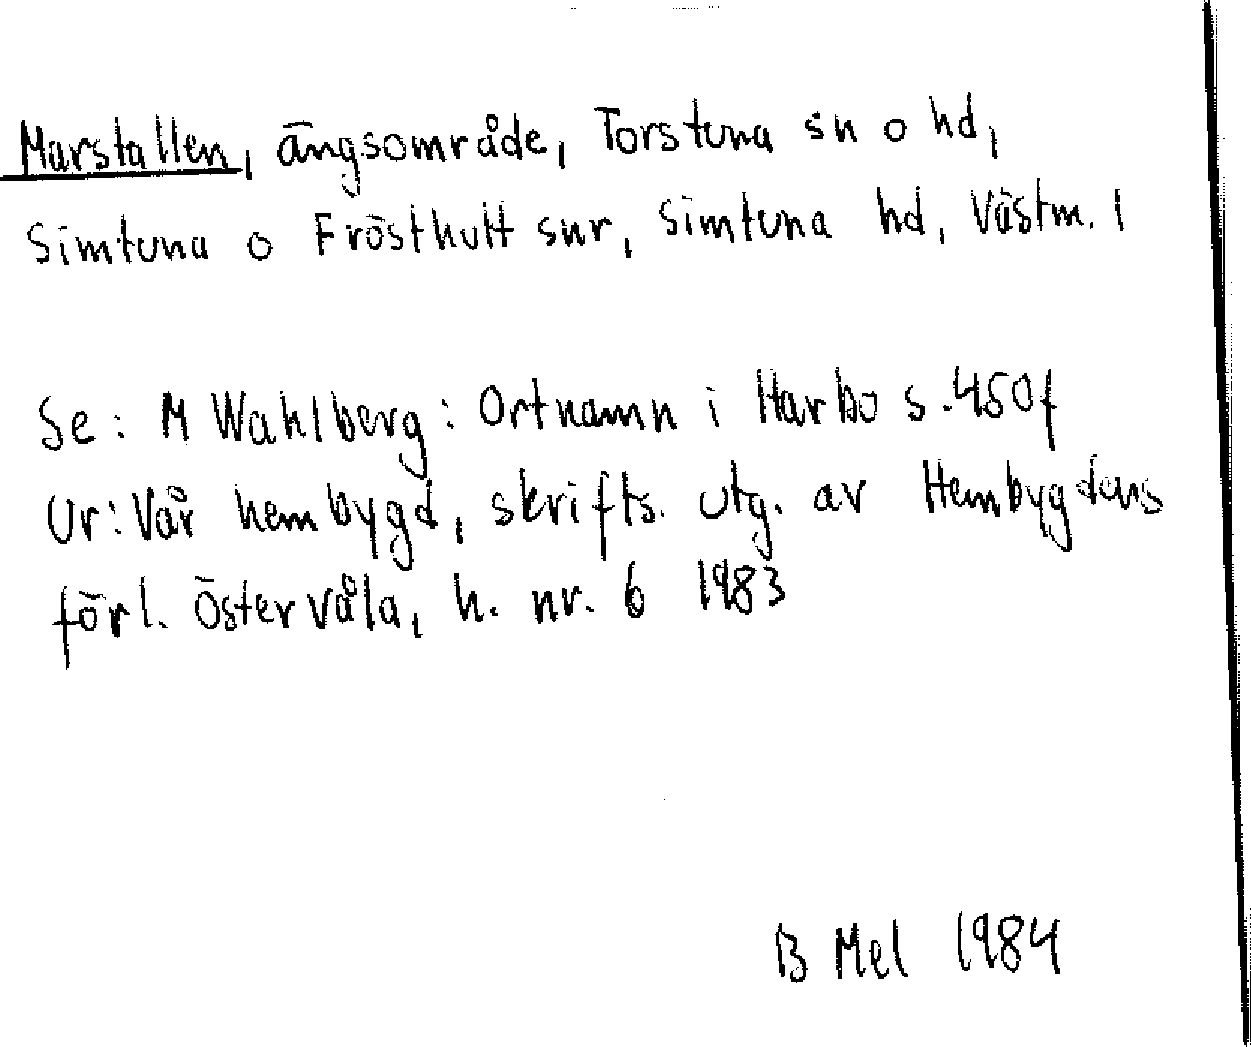 Marstallen, ängsområde, Torstuna sn o hd,
Simtuna o Frösthult snr, Simtuna hd, Västm. l
Se: M Wahlberg: Ortnamn i Harbo s. 450f
Ur: Vår hembygd, skrifts. utg. av Hembygdens
förl. Östervåla, h. nr. 6 1983
B Mel 1984